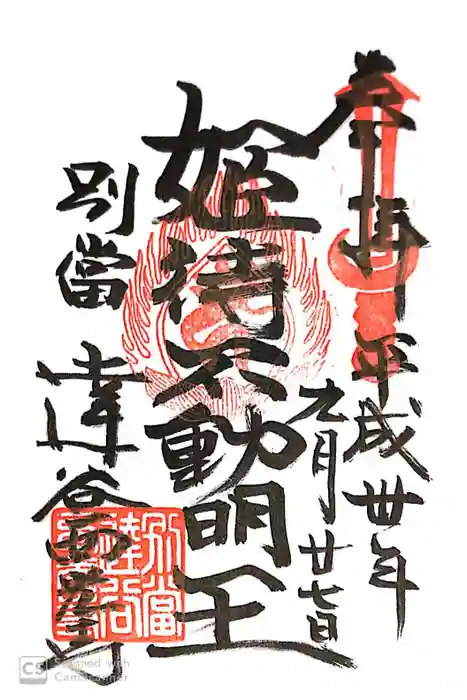 奉拝 平成卅年
九月廿七日
姫待不動明王
別當
達谷西光寺
別當達谷
CS Scanned with
CamScanner